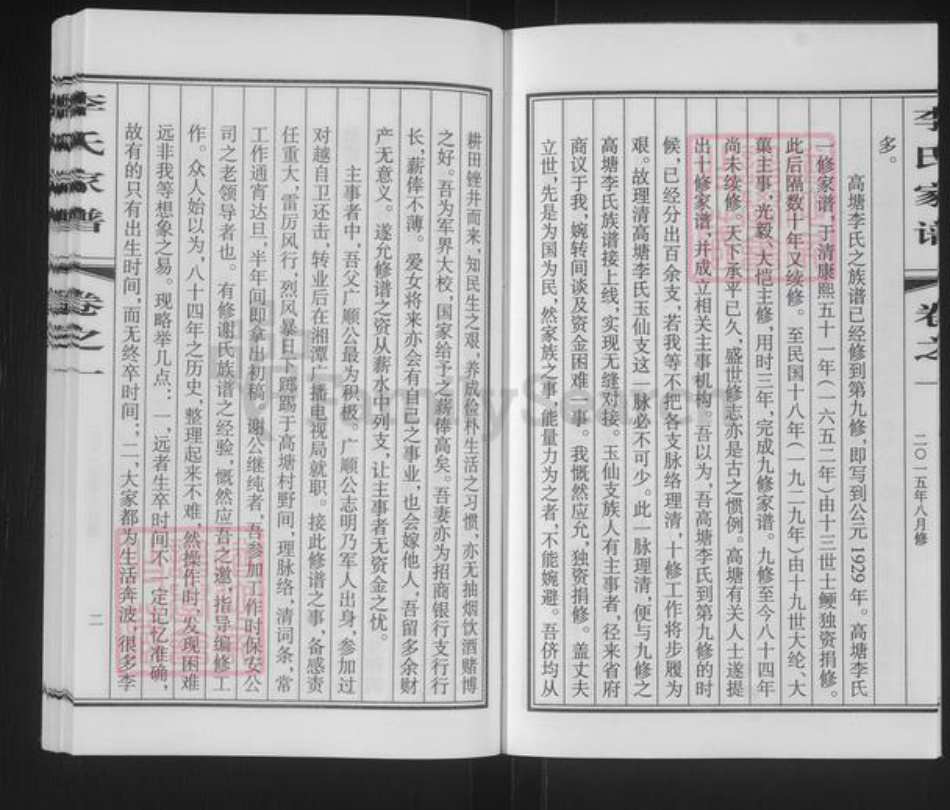 李氏家谱
卷之一
二〇一五年八月修
多。
高塘李氏之族谱已经修到第九修,即写到公元1929年。高塘李氏
一修家谱,于清康熙五十一年(一六五二年)由十三世士鲠独资捐修。
此后隔数十年又续修。至民国十八年(一九二九年)由十九世大纶、大
蕖主事,光毅、大恺主修,用时三年,完成九修家谱。九修至今八十四年
尚未续修。天下承平已久,盛世修志亦是古之惯例。高塘有关人士遂提
出十修家谱,并成立相关主事机构。吾以为,吾高塘李氏到第九修的时
候,已经分出百余支,若我等不把各支脉络理清,十修工作将步履为
艰。故理清高塘李氏玉仙支这一脉必不可少。此一脉理清,便与九修之
高塘李氏族谱接上线,实现无缝对接。玉仙支族人有主事者,径来省府
商议于我,婉转间谈及资金困难一事。我慨然应允,独资捐修。盖丈夫
立世,先是为国为民,然家族之事,能量力为之者,不能婉避。吾侪均从
耕田锉井而来,知民生之艰,养成俭朴生活之习惯,亦无抽烟饮酒赌博
之好。吾为军界大校,国家给予之薪俸高矣。吾妻亦为招商银行支行行
长,薪俸不薄。爱女将来亦会有自己之事业,也会嫁他人,吾留多余财
产无意义。遂允修谱之资从薪水中列支,让主事者无资金之忧。
主事者中,吾父广顺公最为积极。广顺公志明乃军人出身,参加过
对越自卫还击,转业后在湘潭广播电视局就职。接此修谱之事,备感责
任重大,雷厉风行,烈风暴日下踯躅于高塘村野间,理脉络,清词条,常
工作通宵达旦,半年间即拿出初稿。谢公继纯者,吾参加工作时保安公
司之老领导者也。有修谢氏族谱之经验,慨然应吾之邀,指导编修工
作。众人始以为,八十四年之历史,整理起来不难,然操作时,发现困难
远非我等想象之易。现略举几点:一,远者生卒时间不一定记忆准确,
故有的只有出生时间,而无终卒时间;二,大家都为生活奔波,很多李
李氏家谱
卷之一
二
FamilySearch